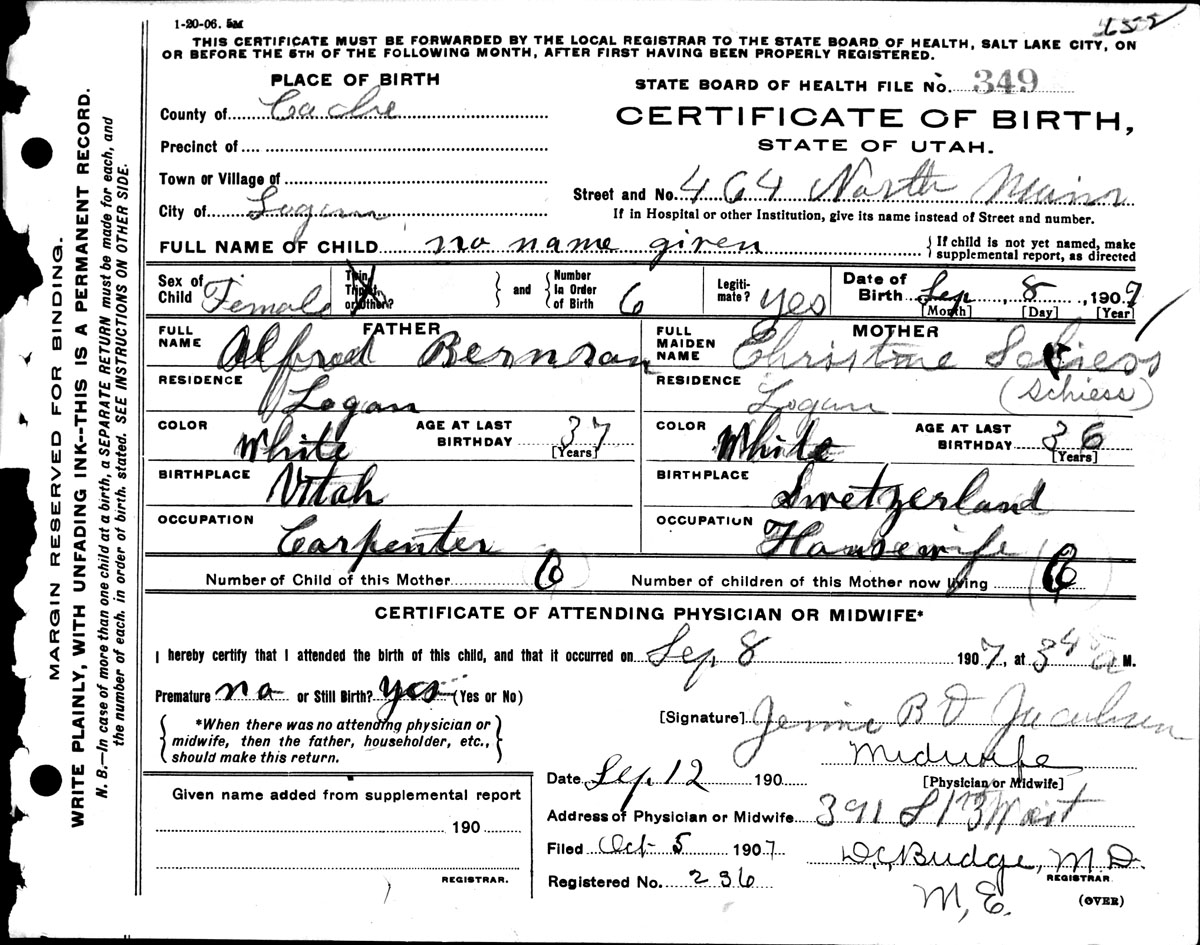 1-20-06. 5M
THIS CERTIFICATE MUST BE FORWARDED BY THE LOCAL REGISTRAR TO THE STATE BOARD OF HEALTH, SALT LAKE CITY, ON
OR BEFORE THE 5TH OF THE FOLLOWING MONTH, AFTER FIRST HAVING BEEN PROPERLY REGISTERED.
PLACE OF BIRTH
County of Cache
Precinct of
Town or Village of
City of Logan
STATE BOARD OF HEALTH FILE No. 349
CERTIFICATE OF BIRTH,
STATE OF UTAH.
Street and No. 464 North Main
If in Hospital or other Institution, give its name instead of Street and number.
FULL NAME OF CHILD no name given
{ If child is not yet named, make
supplemental report, as directed
Sex of Child Female
Twin, Triplet, or Other?
} and { Number In Order of Birth 6
Legiti-mate? yes
Date of Birth Sep 8, 1907
[Month] [Day] [Year]
FATHER
FULL NAME Alfred Bernson
RESIDENCE Logan
COLOR White
AGE AT LAST BIRTHDAY 37
[Years]
BIRTHPLACE Utah
OCCUPATION Carpenter
MOTHER
FULL MAIDEN NAME Christine Schiess
(Schiess)
RESIDENCE Logan
COLOR White
AGE AT LAST BIRTHDAY 36
[Years]
BIRTHPLACE Swetzerland
OCCUPATION Housewife
Number of Child of this Mother 6
Number of children of this Mother now living 6
CERTIFICATE OF ATTENDING PHYSICIAN OR MIDWIFE*
I hereby certify that I attended the birth of this child, and that it occurred on Sep. 8 1907, at 3 45 a M.
Premature no or Still Birth? yes (Yes or No)
{ *When there was no attending physician or
midwife, then the father, householder, etc.,
should make this return. }
[Signature] Jennie B D Jacobsen
Midwife
[Physician or Midwife]
Date Sep. 12 190
Address of Physician or Midwife 391 S 1st West
Filed Oct 5 1907
D.C. Budge, M.D.
REGISTRAR.
Registered No. 236
M, E.
(OVER)
Given name added from supplemental report
190
REGISTRAR.
MARGIN RESERVED FOR BINDING.
WRITE PLAINLY, WITH UNFADING INK--THIS IS A PERMANENT RECORD.
N. B.—In case of more than one child at a birth, a SEPARATE RETURN must be made for each, and
the number of each, in order of birth, stated. SEE INSTRUCTIONS ON OTHER SIDE.